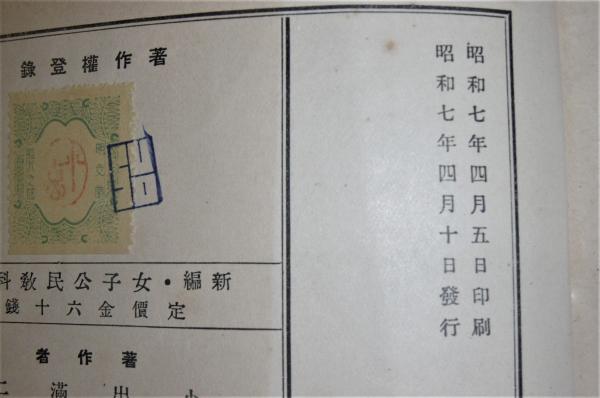 昭和七年四月五日印刷
昭和七年四月十日發行
著作權登錄
新編・女子公民教科
定價金六十錢
著作者
小出滿二